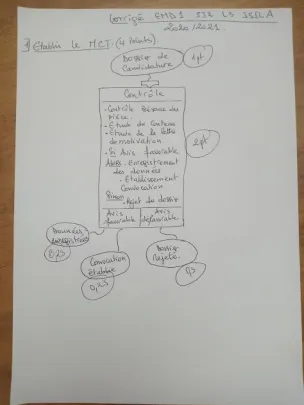 Corrigé EMD1 SI2 L3 ISIL A
2020/2021.
1) Etablir le MCT. (4 Points).
Dossier de
Candidature
1pt
Contrôle
- Contrôle Présence des
Pièce.
- Etude du Contenu
- Etude de la lettre
de motivation
- Si Avis favorable
Alors. Enregistrement
des données
- Etablissement
Convocation
Sinon
- Rejet du dossier
2pt
Avis
favorable
Avis
défavorable
Données
enregistrées
0,25
Convocation
établie
0,25
Dossier
Rejeté.
0,5